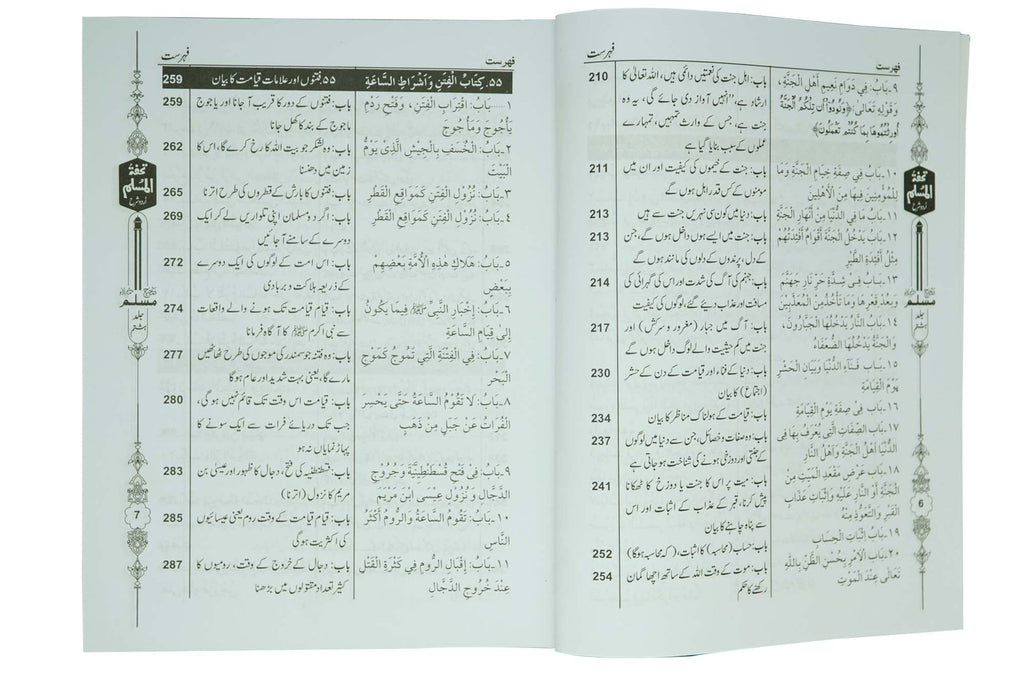 فہرست
فہرست
۹۔بَابٌ: فِي دَوَامِ نَعِيمِ أَهْلِ الْجَنَّةِ،
وَقَوْلِهِ تَعَالَى: ﴿وَنُودُوا أَن تِلْكُمُ الْجَنَّةُ
أُورِثْتُمُوهَا بِمَا كُنتُمْ تَعْمَلُونَ﴾
باب: اہل جنت کی نعمتیں دائمی ہیں، اللہ تعالیٰ کا
ارشاد ہے، ”انہیں آواز دی جائے گی، یہ وہ
جنت ہے، جس کے وارث تمہیں، تمہارے
عملوں کے سبب بنایا گیا ہے
210
۱۰۔بَابٌ فِي صِفَةِ خِيَامِ الْجَنَّةِ وَمَا
لِلْمُؤْمِنِينَ فِيهَا مِنَ الْأَهْلِينَ
باب: جنت کے خیموں کی کیفیت اور ان میں
مومنوں کے کس قدر اہل ہوں گے
211
۱۱۔بَابُ مَا فِي الدُّنْيَا مِنْ أَنْهَارِ الْجَنَّةِ
باب: دنیا میں کون سی نہریں جنت سے ہیں
213
۱۲۔بَابُ يَدْخُلُ الْجَنَّةَ أَقْوَامٌ أَفْئِدَتُهُمْ
مِثْلُ أَفْئِدَةِ الطَّيْرِ
باب: جنت میں ایسے لوگ داخل ہوں گے، جن
کے دل، پرندوں کے دلوں کی مانند ہوں گے
213
۱۳۔بَابٌ فِي شِدَّةِ حَرِّ نَارِ جَهَنَّمَ
وَبُعْدِ قَعْرِهَا وَمَا تَأْخُذُ مِنَ الْمُعَذَّبِينَ
باب: جہنم کی آگ کی شدت اور اس کی گہرائی کی
مسافت اور عذاب دیئے گئے، لوگوں کی کیفیت
214
۱۴۔بَابُ النَّارُ يَدْخُلُهَا الْجَبَّارُونَ،
وَالْجَنَّةُ يَدْخُلُهَا الضُّعَفَاءُ
باب: آگ میں جبار (مغرور و سرکش) اور
جنت میں کم حیثیت والے لوگ داخل ہوں گے
217
۱۵۔بَابُ فَنَاءِ الدُّنْيَا وَبَيَانِ الْحَشْرِ
يَوْمَ الْقِيَامَةِ
باب: دنیا کے فناء اور قیامت کے دن کے حشر
(اجتماع) کا بیان
230
۱۶۔بَابٌ فِي صِفَةِ يَوْمِ الْقِيَامَةِ
باب: قیامت کے ہولناک مناظر کا بیان
234
۱۷۔بَابُ الصِّفَاتِ الَّتِي يُعْرَفُ بِهَا فِي
الدُّنْيَا أَهْلُ الْجَنَّةِ وَأَهْلُ النَّارِ
باب: وہ صفات و خصائل، جن سے دنیا میں لوگوں
کے جنتی اور دوزخی ہونے کی شناخت ہو جاتی ہے
237
۱۸۔بَابُ عَرْضِ مَقْعَدِ الْمَيِّتِ مِنَ
الْجَنَّةِ أَوِ النَّارِ عَلَيْهِ وَإِثْبَاتِ عَذَابِ
الْقَبْرِ وَالتَّعَوُّذِ مِنْهُ
باب: میت پر اس کا جنت یا دوزخ کا ٹھکانا
پیش کرنا، قبر کے عذاب کے اثبات اور اس
سے پناہ چاہنے کا بیان
241
۱۹۔بَابُ إِثْبَاتِ الْحِسَابِ
باب: حساب (محاسبہ) کا اثبات، (کہ محاسبہ ہوگا)
252
۲۰۔بَابُ الْأَمْرِ بِحُسْنِ الظَّنِّ بِاللّٰهِ
تَعَالَى عِنْدَ الْمَوْتِ
باب: موت کے وقت اللہ کے ساتھ اچھا گمان
رکھنے کا حکم
254
تحفۃ
المسلم
اردو شرح
مسلم
جلد
ہشتم
6
فہرست
فہرست
۵۵۔ كِتَابُ الْفِتَنِ وَأَشْرَاطِ السَّاعَةِ
۵۵ فتنوں اور علامات قیامت کا بیان
259
۱.....بَابُ: اقْتِرَابِ الْفِتَنِ، وَفَتْحِ رَدْمِ
يَأْجُوجَ وَمَأْجُوجَ
باب: فتنوں کے دور کا قریب آ جانا اور یاجوج
ماجوج کے بند کا کھل جانا
259
۲۔بَابُ: الْخَسْفِ بِالْجَيْشِ الَّذِي يَؤُمُّ
الْبَيْتَ
باب: وہ لشکر جو بیت اللہ کا رخ کرے گا، اس کا
زمین میں دھنسنا
262
۳۔بَابُ: نُزُولِ الْفِتَنِ كَمَوَاقِعِ الْقَطْرِ
باب: فتنوں کا بارش کے قطروں کی طرح اترنا
265
۴۔بَابُ: نُزُولِ الْفِتَنِ كَمَوَاقِعِ الْقَطْرِ
باب: اگر دو مسلمان اپنی تلواریں لے کر ایک
دوسرے کے سامنے آ جائیں
269
۵۔بَابُ: هَلَاكِ هَذِهِ الْأُمَّةِ بَعْضِهِمْ
بِبَعْضٍ
باب: اس امت کے لوگوں کی ایک دوسرے
کے ذریعہ ہلاکت و بربادی
272
۶۔بَابُ: إِخْبَارِ النَّبِيِّ ﷺ فِيمَا يَكُونُ
إِلَى قِيَامِ السَّاعَةِ
باب: قیام قیامت تک ہونے والے واقعات
سے نبی اکرم ﷺ کا آگاہ فرمانا
274
۷۔بَابٌ: فِي الْفِتْنَةِ الَّتِي تَمُوجُ كَمَوْجِ
الْبَحْرِ
باب: وہ فتنہ جو سمندر کی موجوں کی طرح ٹھاٹھیں
مارے گا، یعنی بہت شدید اور عام ہوگا
277
۸۔بَابُ: لَا تَقُومُ السَّاعَةُ حَتَّى يَحْسِرَ
الْفُرَاتُ عَنْ جَبَلٍ مِنْ ذَهَبٍ
باب: قیامت اس وقت تک قائم نہیں ہوگی،
جب تک دریائے فرات سے ایک سونے کا
پہاڑ نمایاں نہ ہو
280
۹۔بَابٌ: فِي فَتْحِ قُسْطَنْطِينِيَّةَ وَخُرُوجِ
الدَّجَّالِ وَنُزُولِ عِيسَى ابْنِ مَرْيَمَ
باب: قسطنطنیہ کی فتح، دجال کا ظہور اور عیسیٰ بن
مریم کا نزول (اترنا)
283
۱۰۔بَابُ: تَقُومُ السَّاعَةُ وَالرُّومُ أَكْثَرُ
النَّاسِ
باب: قیام قیامت کے وقت روم یعنی عیسائیوں
کی اکثریت ہوگی
285
۱۱۔بَابُ: إِقْبَالِ الرُّومِ فِي كَثْرَةِ الْقَتْلِ
عِنْدَ خُرُوجِ الدَّجَّالِ
باب: دجال کے خروج کے وقت، رومیوں کا
کثیر تعداد مقتولوں میں بڑھنا
287
تحفۃ
المسلم
اردو شرح
مسلم
جلد
ہشتم
7